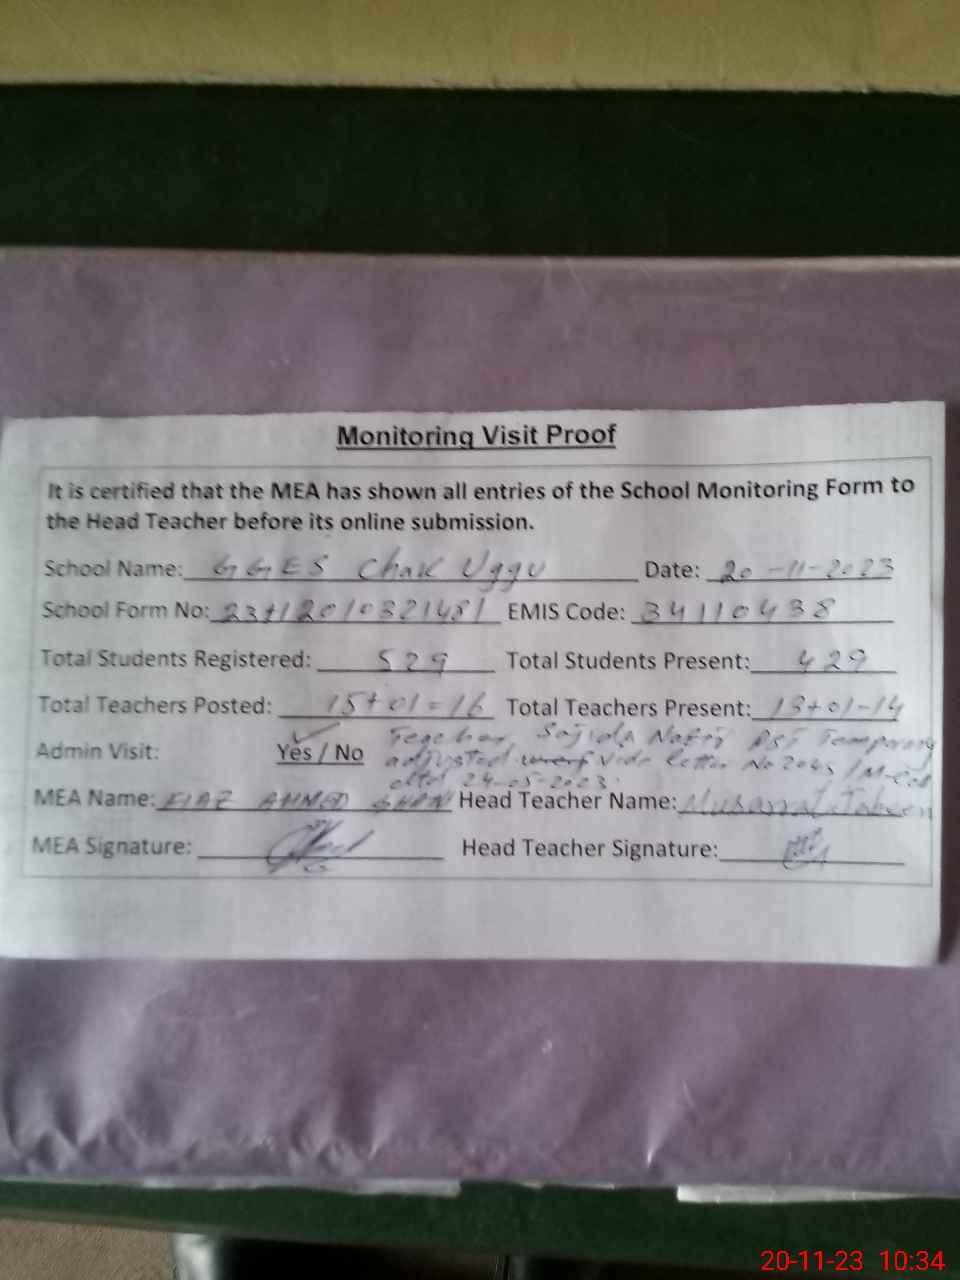 Monitoring Visit Proof
It is certified that the MEA has shown all entries of the School Monitoring Form to
the Head Teacher before its online submission.
School Name: GGES Chak Uggu Date: 20-11-2023
School Form No: EMIS Code: 34110438
Total Students Registered: 529 Total Students Present: 429
Total Teachers Posted: 15+01=16 Total Teachers Present: 13+01-14
Teacher Sajida PST Temporary
Admin Visit: Yes / No
adjusted vide letter No
dted 24-05-2023.
MEA Name: AHMED Head Teacher Name: Musarrat
MEA Signature: Head Teacher Signature:
20-11-23 10:34